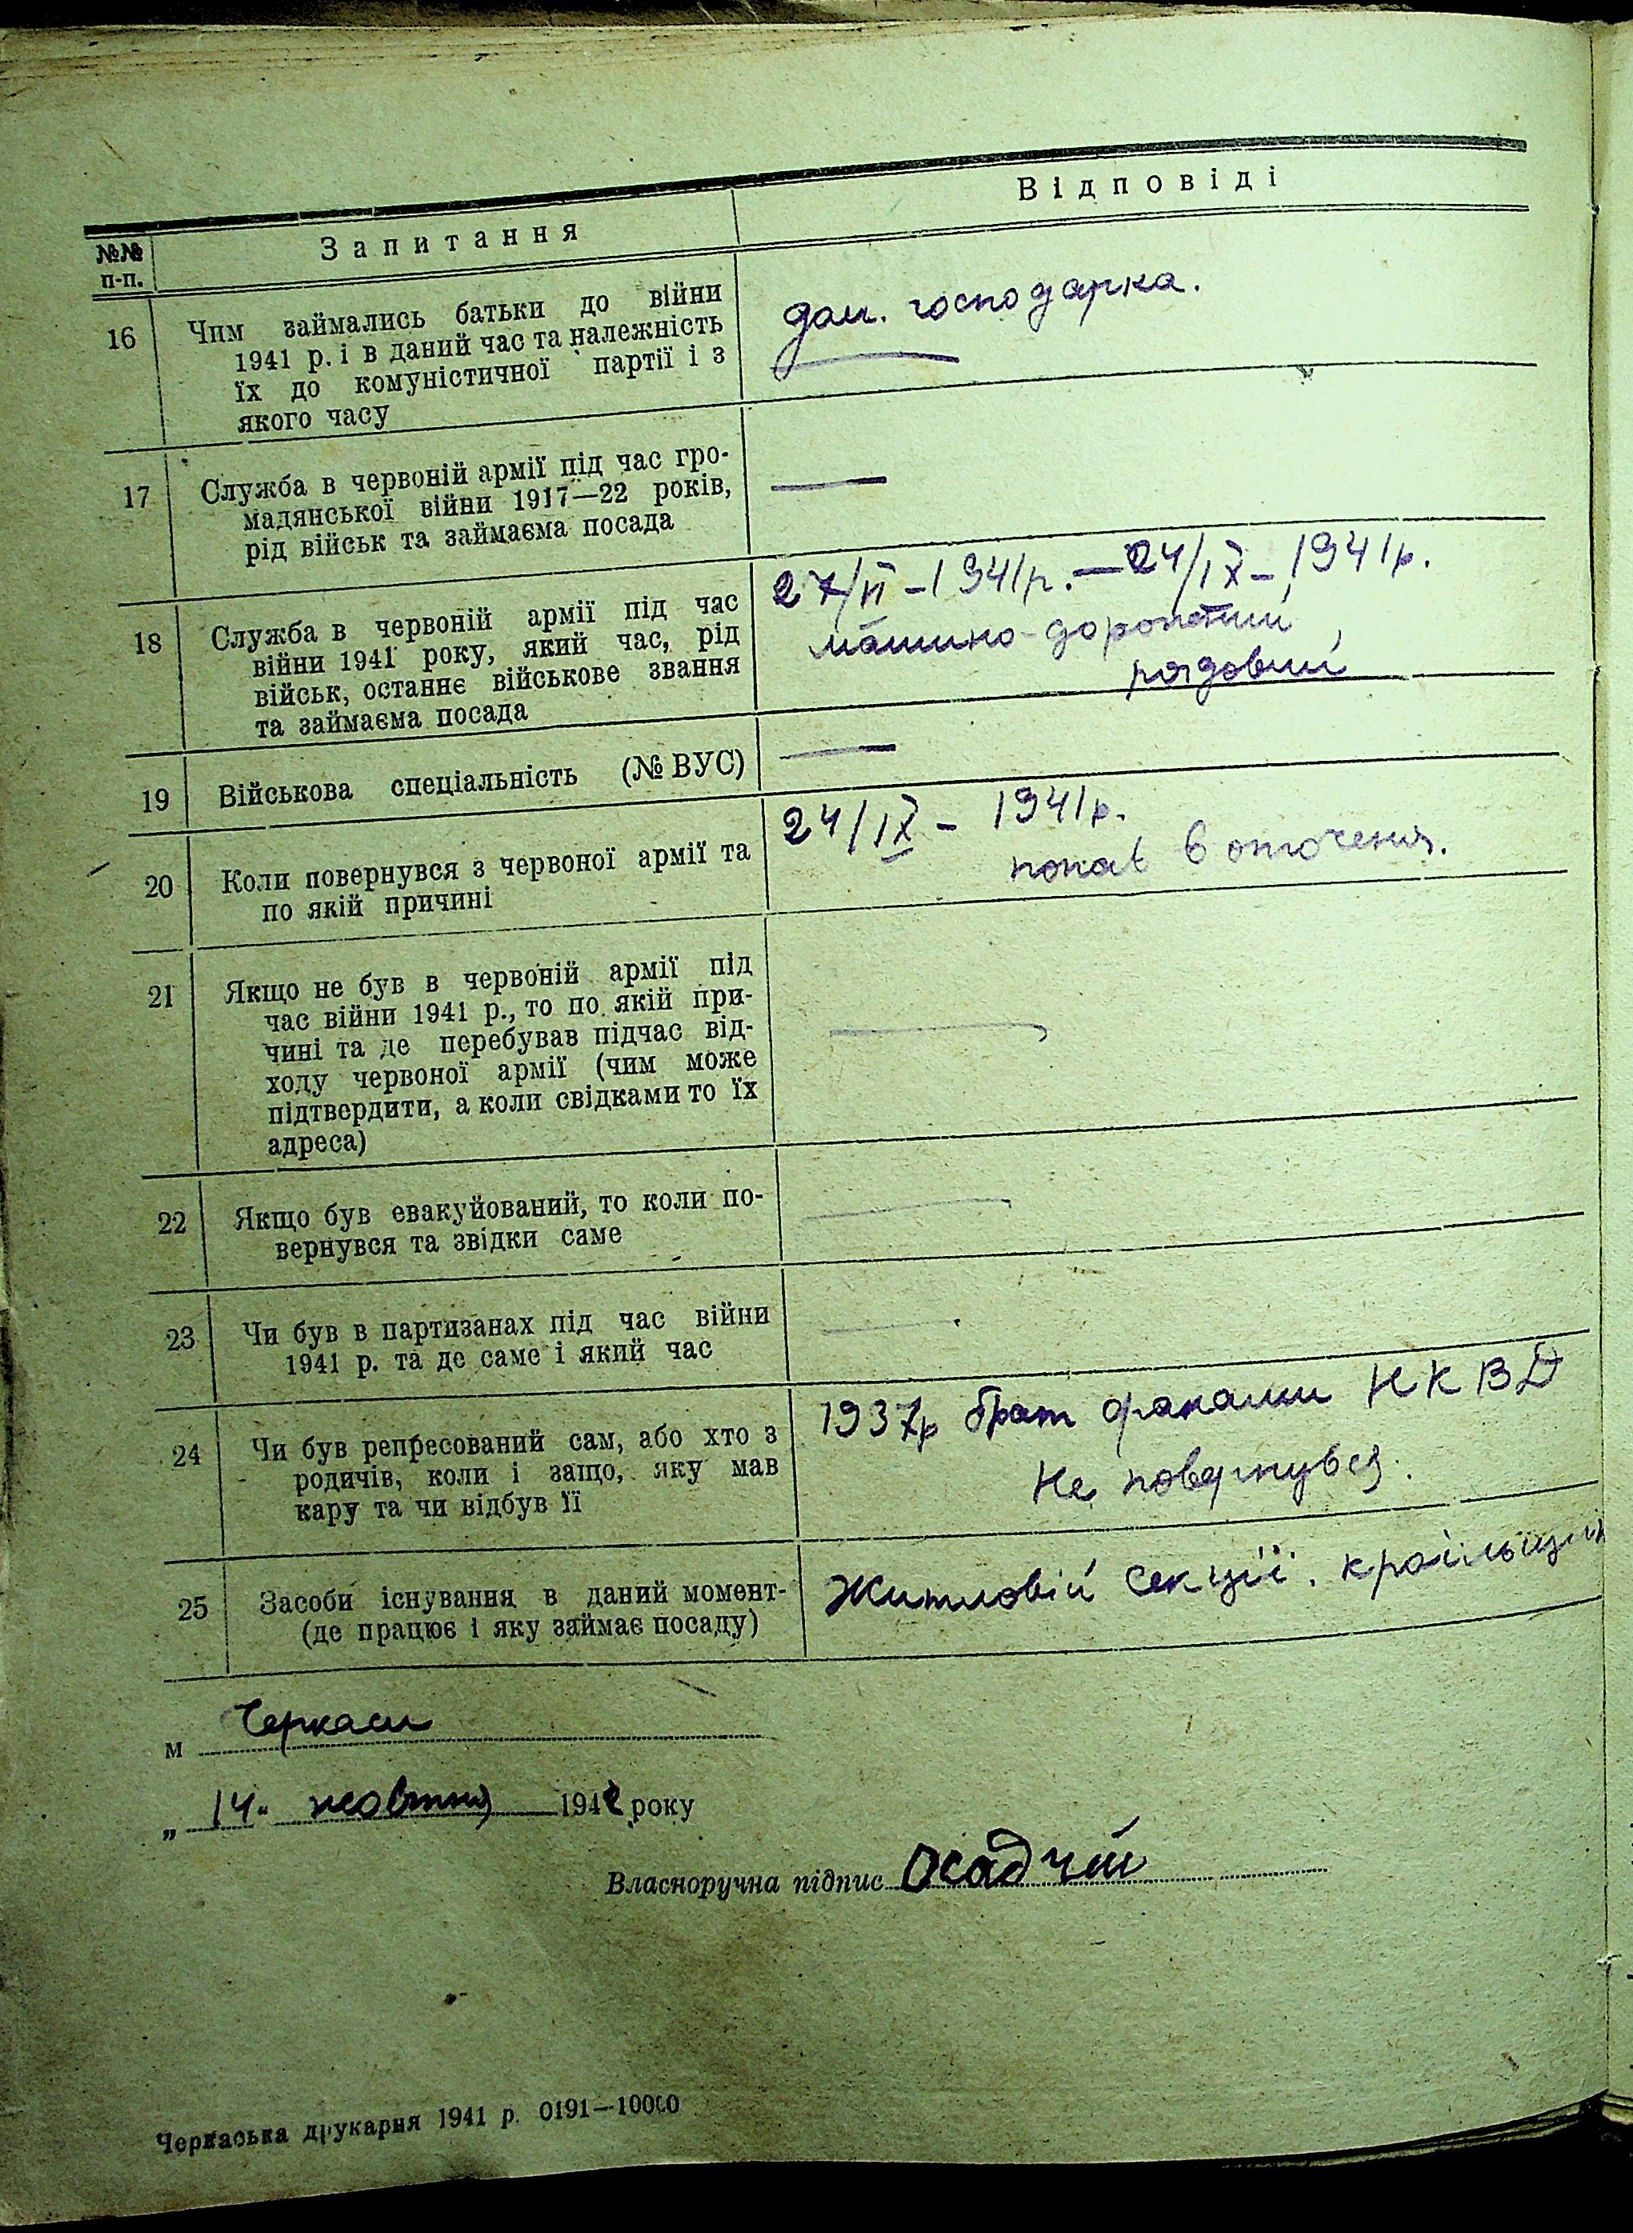 №№ п-п.
Запитання
Відповіді
16
Чим займались батьки до війни
1941 р. і в даний час та належність
їх до комуністичної партії і з
якого часу
дом. господарка.
17
Служба в червоній армії під час гро-
мадянської війни 1917—22 років,
рід військ та займаєма посада
—
18
Служба в червоній армії під час
війни 1941 року, який час, рід
військ, останнє військове звання
та займаєма посада
27/VI – 1941р. — 24/IX – 1941р.
машино-дорожный,
рядовий
19
Військова спеціальність (№ ВУС)
—
20
Коли повернувся з червоної армії та
по якій причині
24/IX – 1941р.
попав в оточення.
21
Якщо не був в червоній армії під
час війни 1941 р., то по якій при-
чині та де перебував підчас від-
ходу червоної армії (чим може
підтвердити, а коли свідками то їх
адреса)
—
22
Якщо був евакуйований, то коли по-
вернувся та звідки саме
—
23
Чи був в партизанах під час війни
1941 р. та де саме і який час
—
24
Чи був репресований сам, або хто з
родичів, коли і защо, яку мав
кару та чи відбув її
1937р брат НКВД
не повернувся.
25
Засоби існування в даний момент-
(де працює і яку займає посаду)
Житловій секції, кроїльщик
м Черкаси
„ 14 " жовтня 1942 року
Власноручна підпис Осадчий
Черкаська друкарня 1941 р. 0191—10000